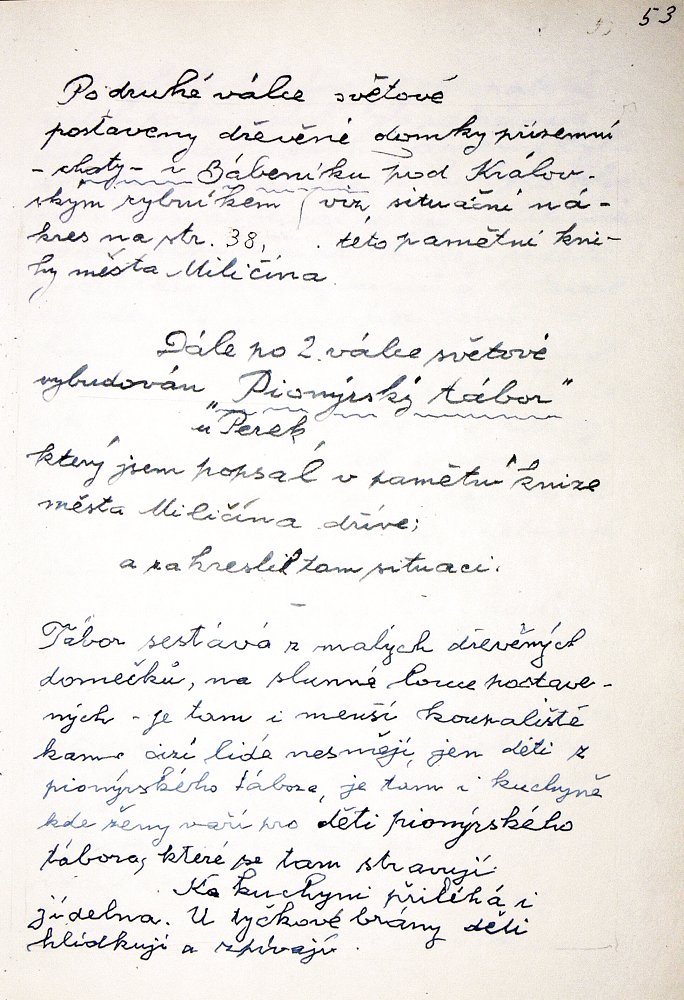 53
Po druhé válce světové
postaveny dřevěné domky přízemní
- chaty - v Bábeníku pod Králov-
ským rybníkem (viz situační ná-
kres na str. 38, této pamětní kni-
hy města Miličína
Dále po 2. válce světové
vybudován "Pionýrský tábor"
u Perek
který jsem popsal v pamětní knize
města Miličína dříve;
a zakreslil tam situaci.
Tábor sestává z malých dřevěných
domečků, na slunné louce postave-
ných - je tam i menší koupaliště
kam cizí lidé nesmějí, jen děti z
pionýrského tábora, je tam i kuchyně
kde ženy vaří pro děti pionýrského
tábora, které se tam stravují
Ke kuchyni přiléhá i
jídelna. U tyčkové brány děti
hlídkují a zpívají.